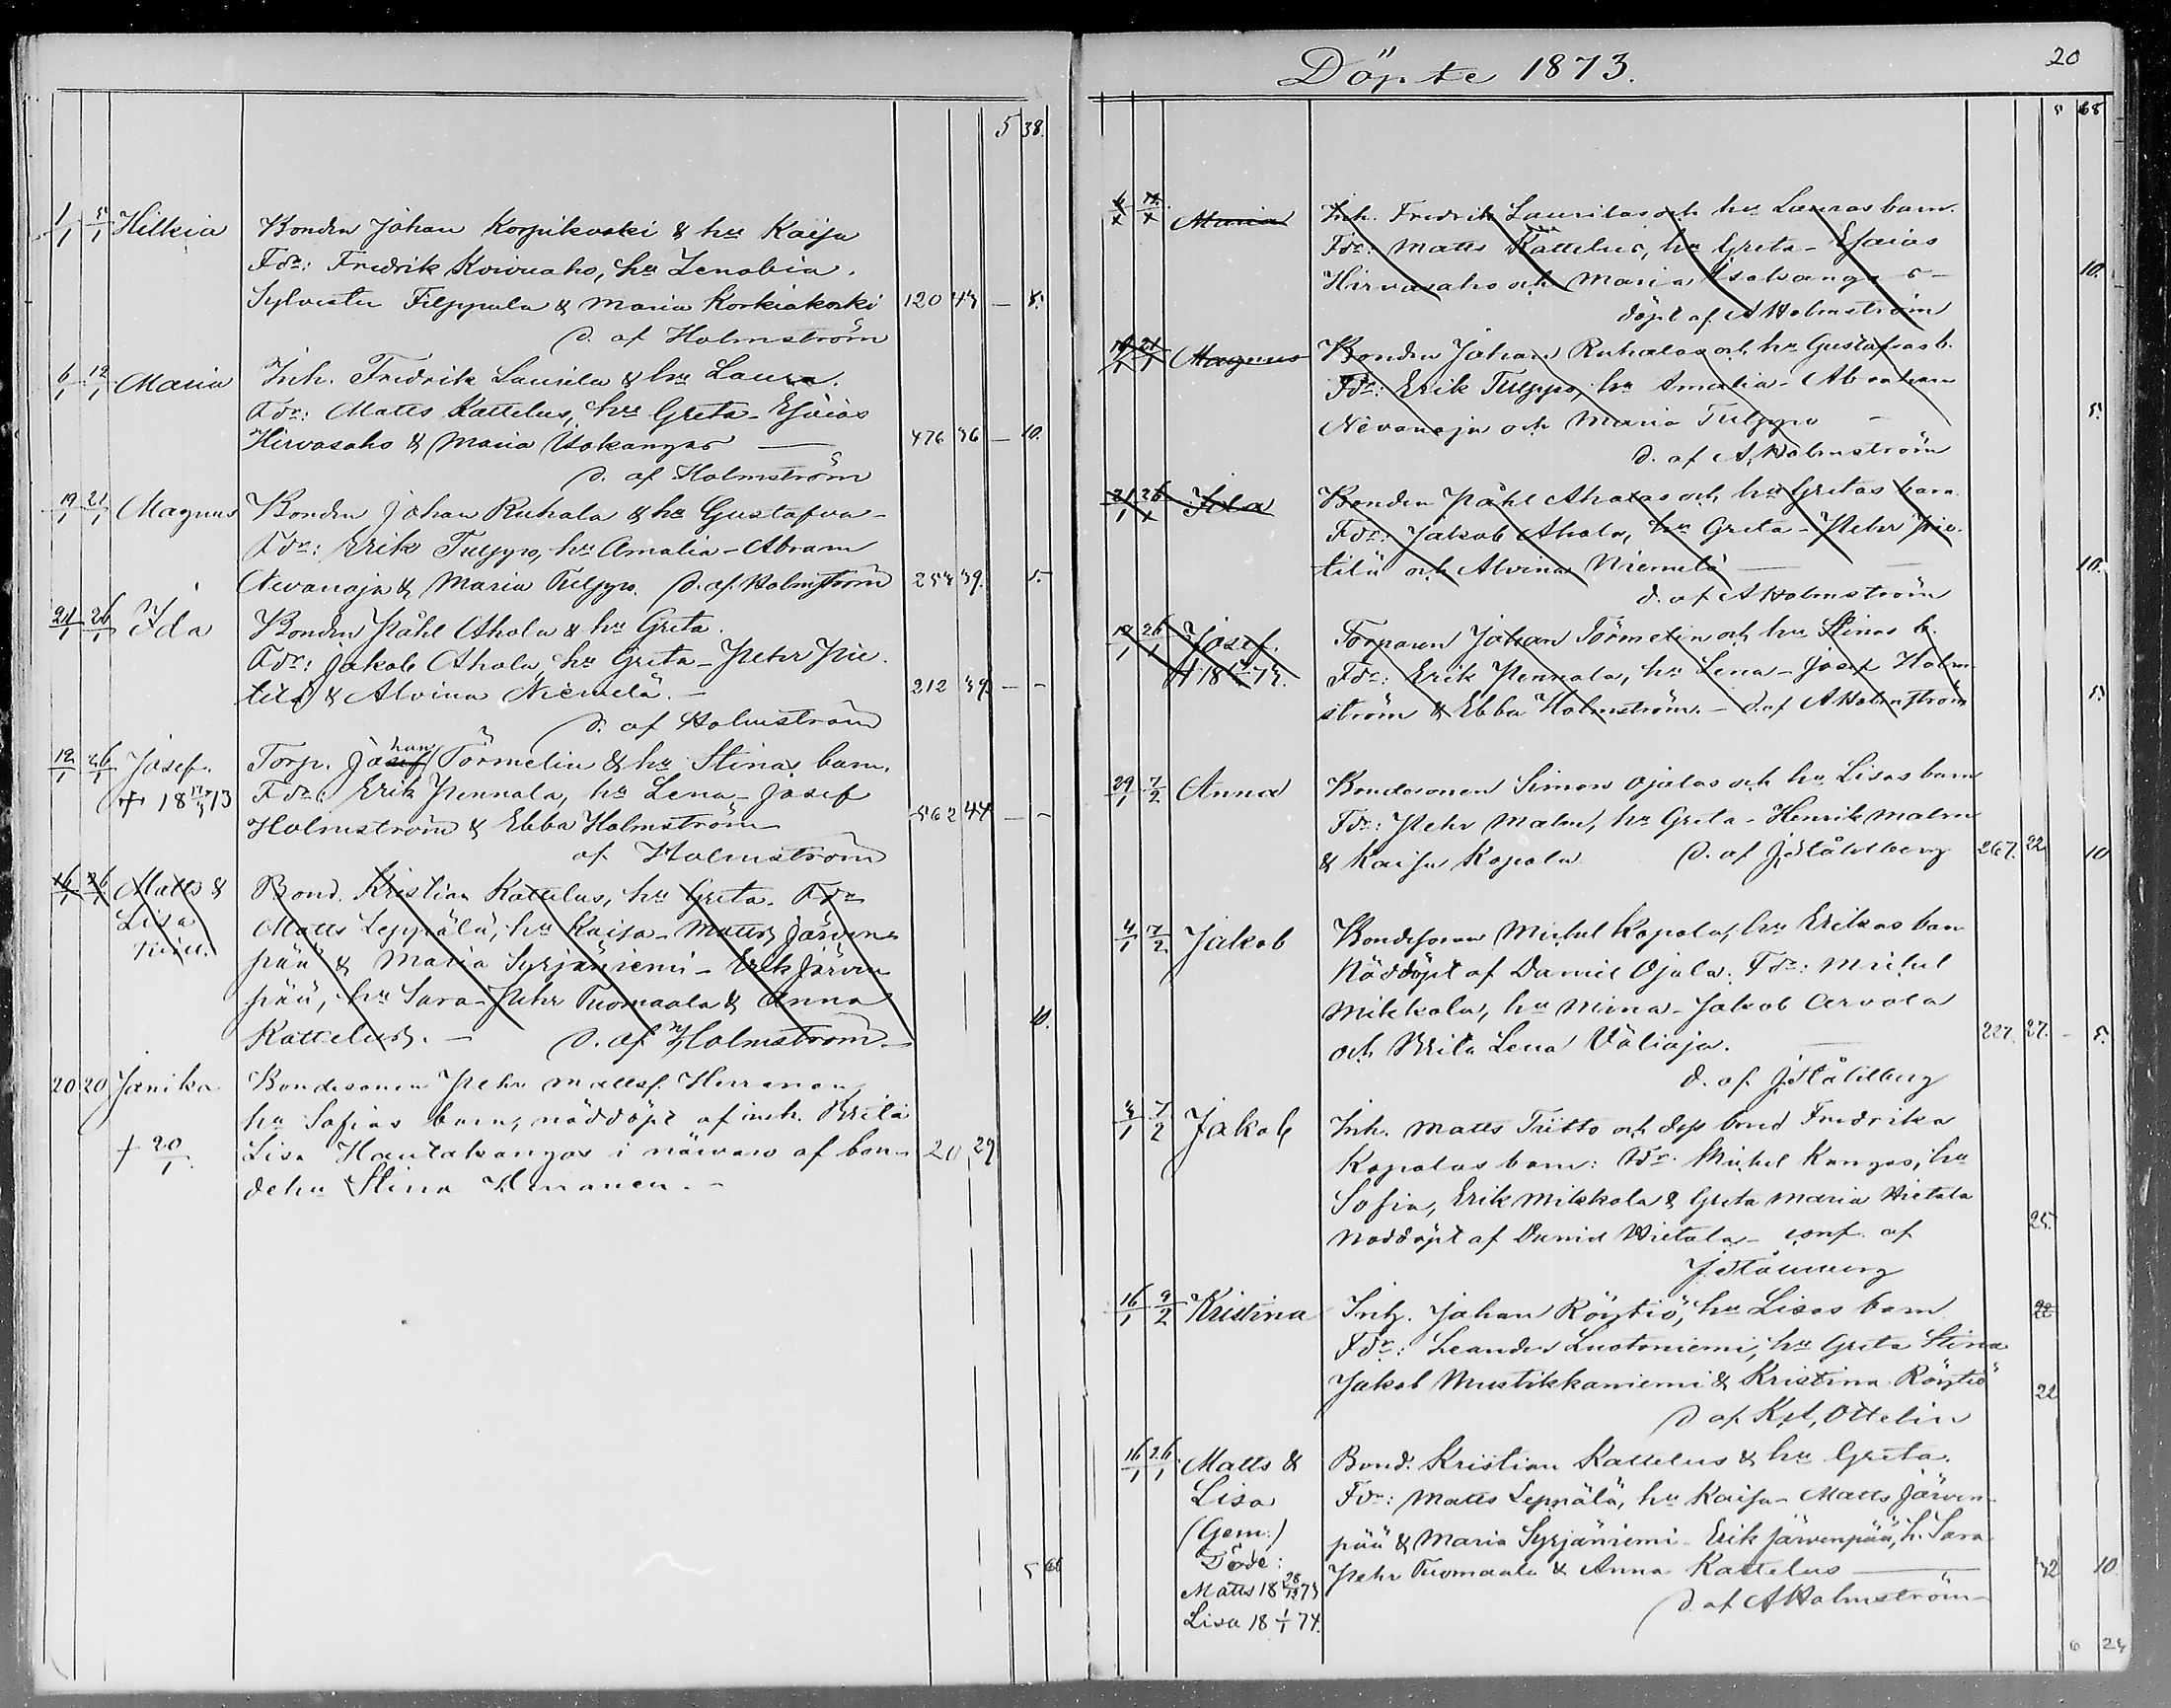 5 38.
1/1 5/1 Hilkia Bonden Johan Korpikoski & hu Kaisa
Fdr: Fredrik Koivuaho, hu Zenobia.
Sylvester Filppula & Maria Korkiakoski 120 43 — 5.
d. af Holmström
6/1 12/1 Maria Inh. Fredrik Laurila & hu Laura.
Fdr: Matts Kattelus, hu Greta - Esaias
Hirvasaho & Maria Isokangas — 476 36 — 10.
d. af Holmström
19/1 21/1 Magnus Bonden Johan Ruhala & hu Gustafva -
Fdr: Erik Tulppo, hu Amalia - Abram
Nevanoja & Maria Tulppo. d. af Holmström 254 39. 5.
21/1 26/1 Ida Bonden Påhl Ahola & hu Greta.
Fdr: Jakob Ahola, hu Greta - Petter Pie-
tilä & Alvina Niemelä. - 212 39. — -
d. af Holmström
12/1 26/1 Josef. Torp. Johan Törmelin & hu Stinas barn.
† 18 17/4 73 Fdr: Erik Pennala, hu Lena - Josef
Holmström & Ebba Holmström 562 44 — -
af Holmström
16/1 26/1 Matts & Bond. Kristian Kattelus, hu Greta. Fdr
Lisa Matts Leppälä, hu Kaisa - Matts Järven-
tvill. pää & Maria Syrjäniemi - Erik Järven
pää, hu Sara - Pehr Tuomaala & Anna
Kattelus. - d. af Holmström - 10.
20 20 Janika Bondesonen Pehr Mattsf. Herranen
hu Sofias barn, nöddöpt af inh. Brita
† 20/1. Lisa Hautakangas i närvaro af bon- 20 29
dehu Stina Herranen. -
5 68
Döpte 1873.
20
5 68
6/1 12/1 Maria Inh. Fredrik Laurilas och hu Lauras barn.
Fdr: Matts Kattelus, hu Greta - Esaias
Hirvasaho och Maria Isokangas - 10.
döpt af A Holmström
19/1 21/1 Magnus Bonden Johan Ruhalas och hu Gustafvas b.
Fdr: Erik Tulppo, hu Amalia - Abraham
Nevanoja och Maria Tulppo - 5.
d. af A. Holmström
21/1 26/1 Ida Bonden Påhl Aholas och hu Gretas barn
Fdr: Jakob Ahola, hu Greta - Pehr Pie-
tilä och Alvina Niemelä — 10.
d. af A Holmström
12/1 26/1 Josef. Torparen Johan Törmelin och hu Stinas b.
Fdr: Erik Pennala, hu Lena - Josef Holm-
ström & Ebba Holmström. - d. af A Holmström 5.
29/1 7/2 Anna Bondesonen Simon Ojalas och hu Lisas barn
Fdr: Pehr Malm, hu Greta - Henrik Malm
& Kaisa Kopola d. af J. Ståhlberg 267. 22 10
4/1 7/2 Jakob Bondesonen Michel Kopola, hu Erikas barn
Nöddöpt af Daniel Ojala. Fdr: Michel
Mikkola, hu Mina - Jakob Arvola
och Brita Lena Väliaja. 227. 27. - 5.
d. af J. Ståhlberg
3/1 7/2 Jakob Inh. Matts Tiitto och dess brud Fredrika
Kopolas barn: Fdr. Michel Kangas, hu
Sofia, Erik Mikkola & Greta Maria Hietala 25.
Nöddöpt af Daniel Hietala - conf. af
J. Ståhlberg
16/1 9/2 Kristina Inh. Johan Röytiö, hu Lisas barn 22
Fdr: Leander Luotoniemi, hu Greta Stina
Jakob Mustikkaniemi & Kristina Röytiö 22
d af Kpl, Ottelin
16/1 26/1 Matts & Bond. Kristian Kattelus & hu Greta.
Lisa Fdr: Matts Leppälä, hu Kaisa - Matts Järven-
(Gem.) pää & Maria Syrjäniemi - Erik Järvenpää, h. Sara
Döde: Pehr Tuomaala & Anna Kattelus — 32 10
Matts 18 28/12 73
d. af A Holmström
Lisa 18 1/1 74.
6 24